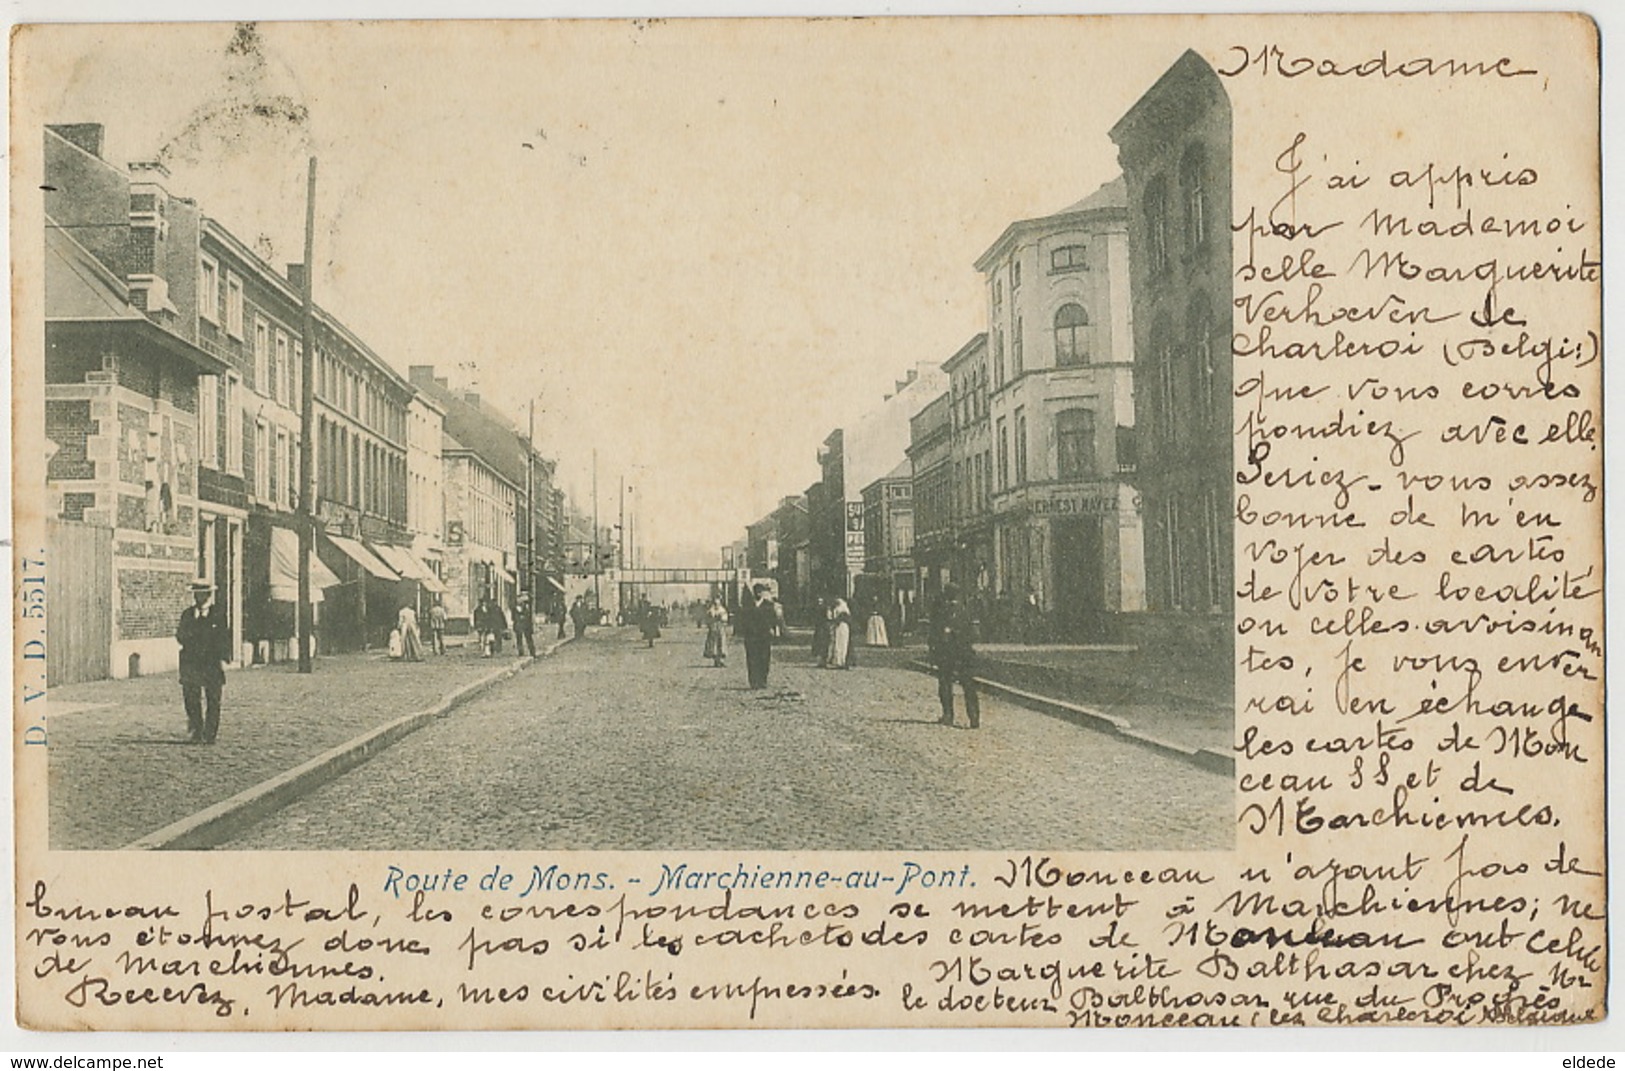 Madame
J'ai appris
par Mademoi
selle Marguerite
Verhœven de
Charleroi (Belgi:)
que vous corres
pondiez avec elle.
Seriez-vous assez
bonne de m'en
voyer des cartes
de votre localité
ou celles avoisinan
tes, je vous enver
rai en échange
les cartes de Mon
ceau SS et de
Marchiennes.
ERNEST NAVEZ
D. V. D. 5517.
Route de Mons. - Marchienne-au-Pont.
Monceau n'ayant pas de
bureau postal, les correspondances se mettent à Marchiennes; ne
vous étonnez donc pas si les cachets des cartes de Monceau ont celui
de Marchiennes.
Recevez, Madame, mes civilités empressées.
Marguerite Balthasar chez Mr
le docteur Balthasar rue du Progrès
Monceau, lez Charleroi Belgique
www.delcampe.net
eldede